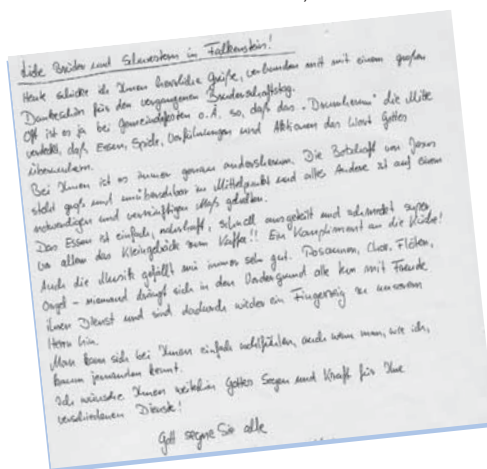 Liebe Brüder und Schwestern in Falkenstein!
Heute schicke ich Ihnen herzliche Grüße, verbunden mit mit einem großen
Dankeschön für den vergangenen Bruderschaftstag.
Oft ist es ja bei Gemeindefesten o.Ä. so, daß das „Drumherum" die Mitte
verdeckt, daß Essen, Spiele, Vorführungen und Aktionen das Wort Gottes
überwuchern.
Bei Ihnen ist es immer genau andersherum. Die Botschaft von Jesus
steht groß und unübersehbar im Mittelpunkt und alles Andere ist auf einem
notwendigen und vernünftigen Maß gehalten.
Das Essen ist einfach, nahrhaft, schnell ausgeteilt und schmeckt super,
vor allem das Kleingebäck zum Kaffee!! Ein Kompliment an die Küche!
Auch die Musik gefällt mir immer sehr gut. Posaunen, Chor, Flöten,
Orgel – niemand drängt sich in den Vordergrund alle tun mit Freude
ihren Dienst und sind dadurch wieder ein Fingerzeig zu unserem
Herrn hin.
Man kann sich bei Ihnen einfach wohlfühlen, auch wenn man, wie ich,
kaum jemanden kennt.
Ich wünsche Ihnen weiterhin Gottes Segen und Kraft für Ihre
verschiedenen Dienste!
Gott segne Sie alle